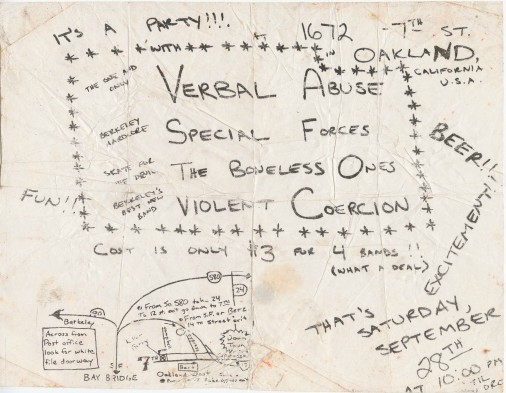 IT'S A PARTY!!!
AT 1672 - 7TH ST.
WITH
IN OAKLAND,
CALIFORNIA
U.S.A.
THE ONE AND
ONLY
VERBAL ABUSE
BERKELEY
HARDCORE
SPECIAL FORCES
SKATE FOR
THE BONELESS ONES
BERKELEY'S
BEST NEW
BAND
VIOLENT COERCION
FUN!!
BEER!!
EXCITEMENT!
COST IS ONLY $3 FOR 4 BANDS!!
(WHAT A DEAL)
THAT'S SATURDAY,
SEPTEMBER
28TH
AT 10:00 PM
TIL
580
24
From So. 580 take 24
To 12 st. exit go down to 7TH
From S.F. or Berk
14TH Street
90
Berkeley
Across from
Post office
look for white
tile doorway
S.F.
BAY BRIDGE
7TH
Oakland West